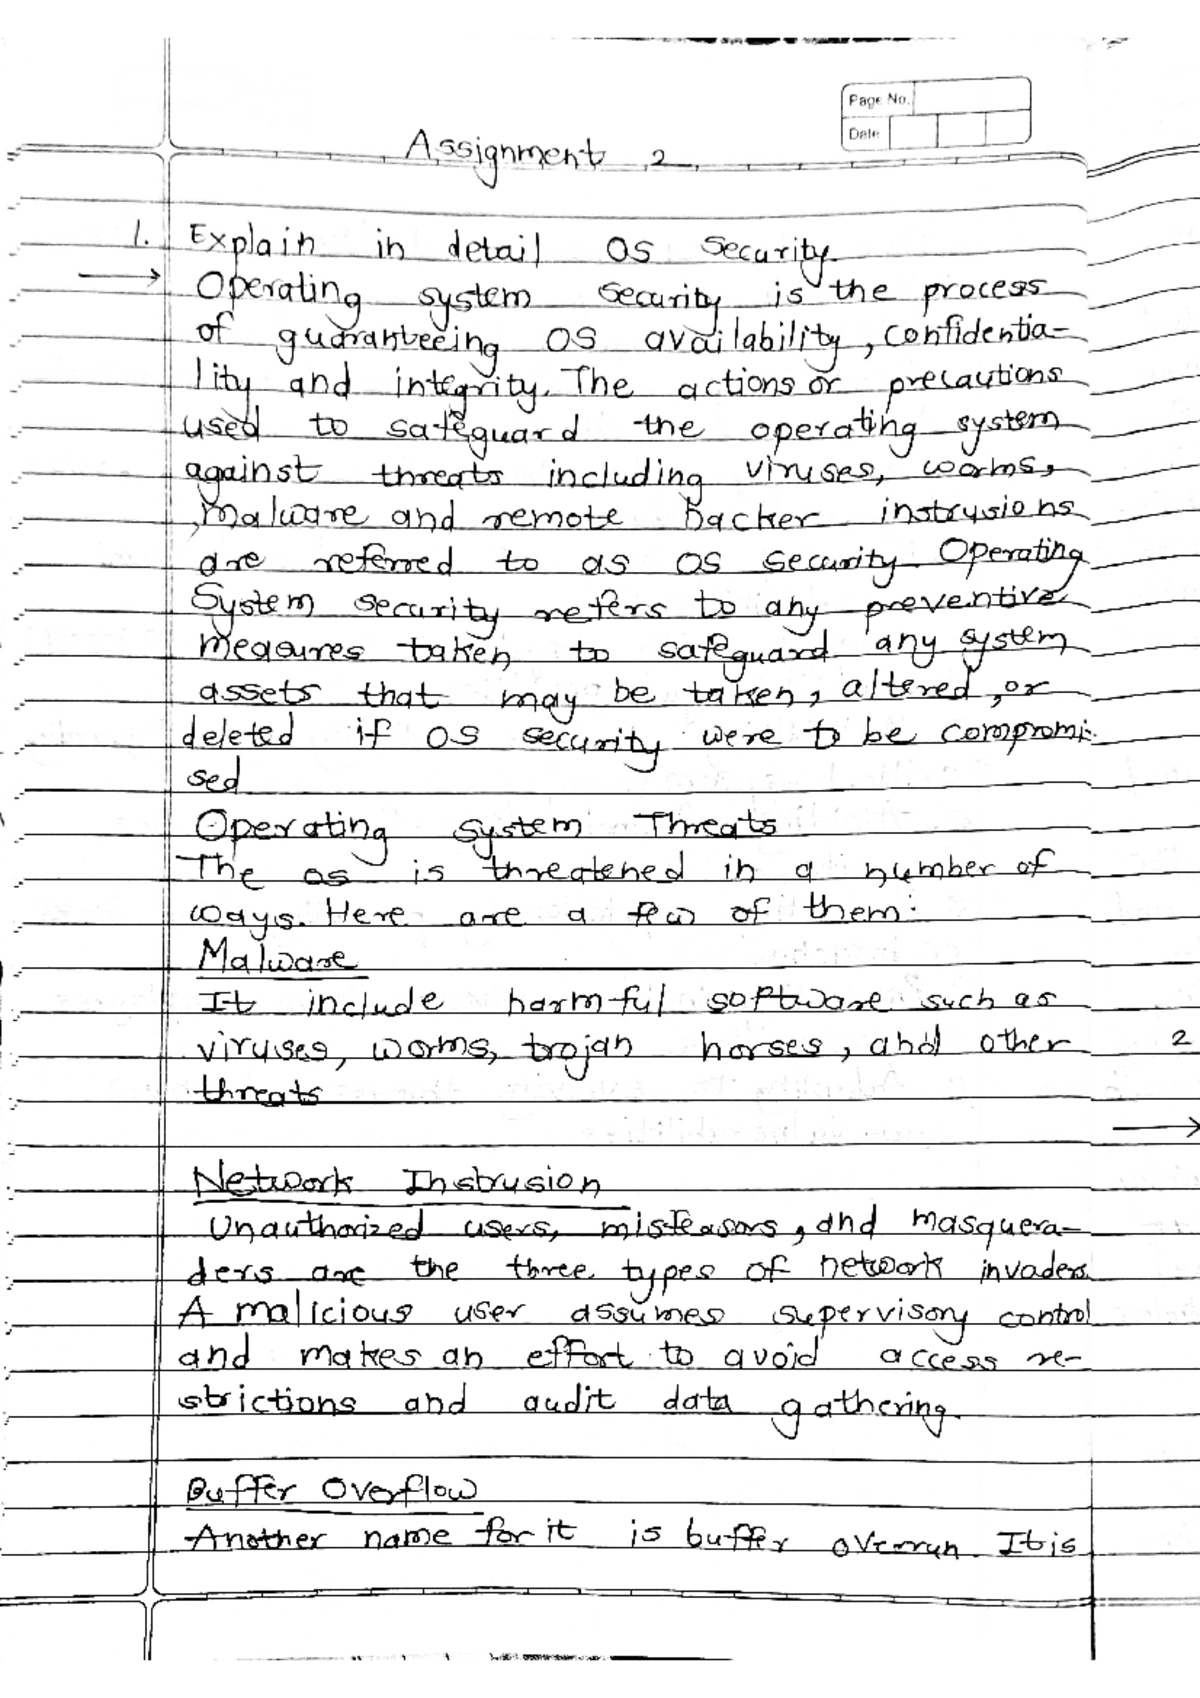 Page No.
Date
Assignment 2
1. Explain in detail OS Security.
→ Operating system security is the process
of guaranteeing OS availability, confidentia-
lity and integrity. The actions or precautions
used to safeguard the operating system
against threats including viruses, worms,
malware and remote hacker instrusions
are referred to as OS security. Operating
System security refers to any preventive
measures taken to safeguard any system
assets that may be taken, altered, or
deleted if OS security were to be compromi-
sed
Operating System Threats
The os is threatened in a number of
ways. Here are a few of them:
Malware
It include harmful software such as
viruses, worms, trojan horses, and other
threats
2
→
Network Instrusion
Unauthorized users, misfeasors, and masquera-
ders are the three types of network invaders.
A malicious user assumes supervisory control
and makes an effort to avoid access re-
strictions and audit data gathering.
Buffer Overflow
Another name for it is buffer overrun. It is